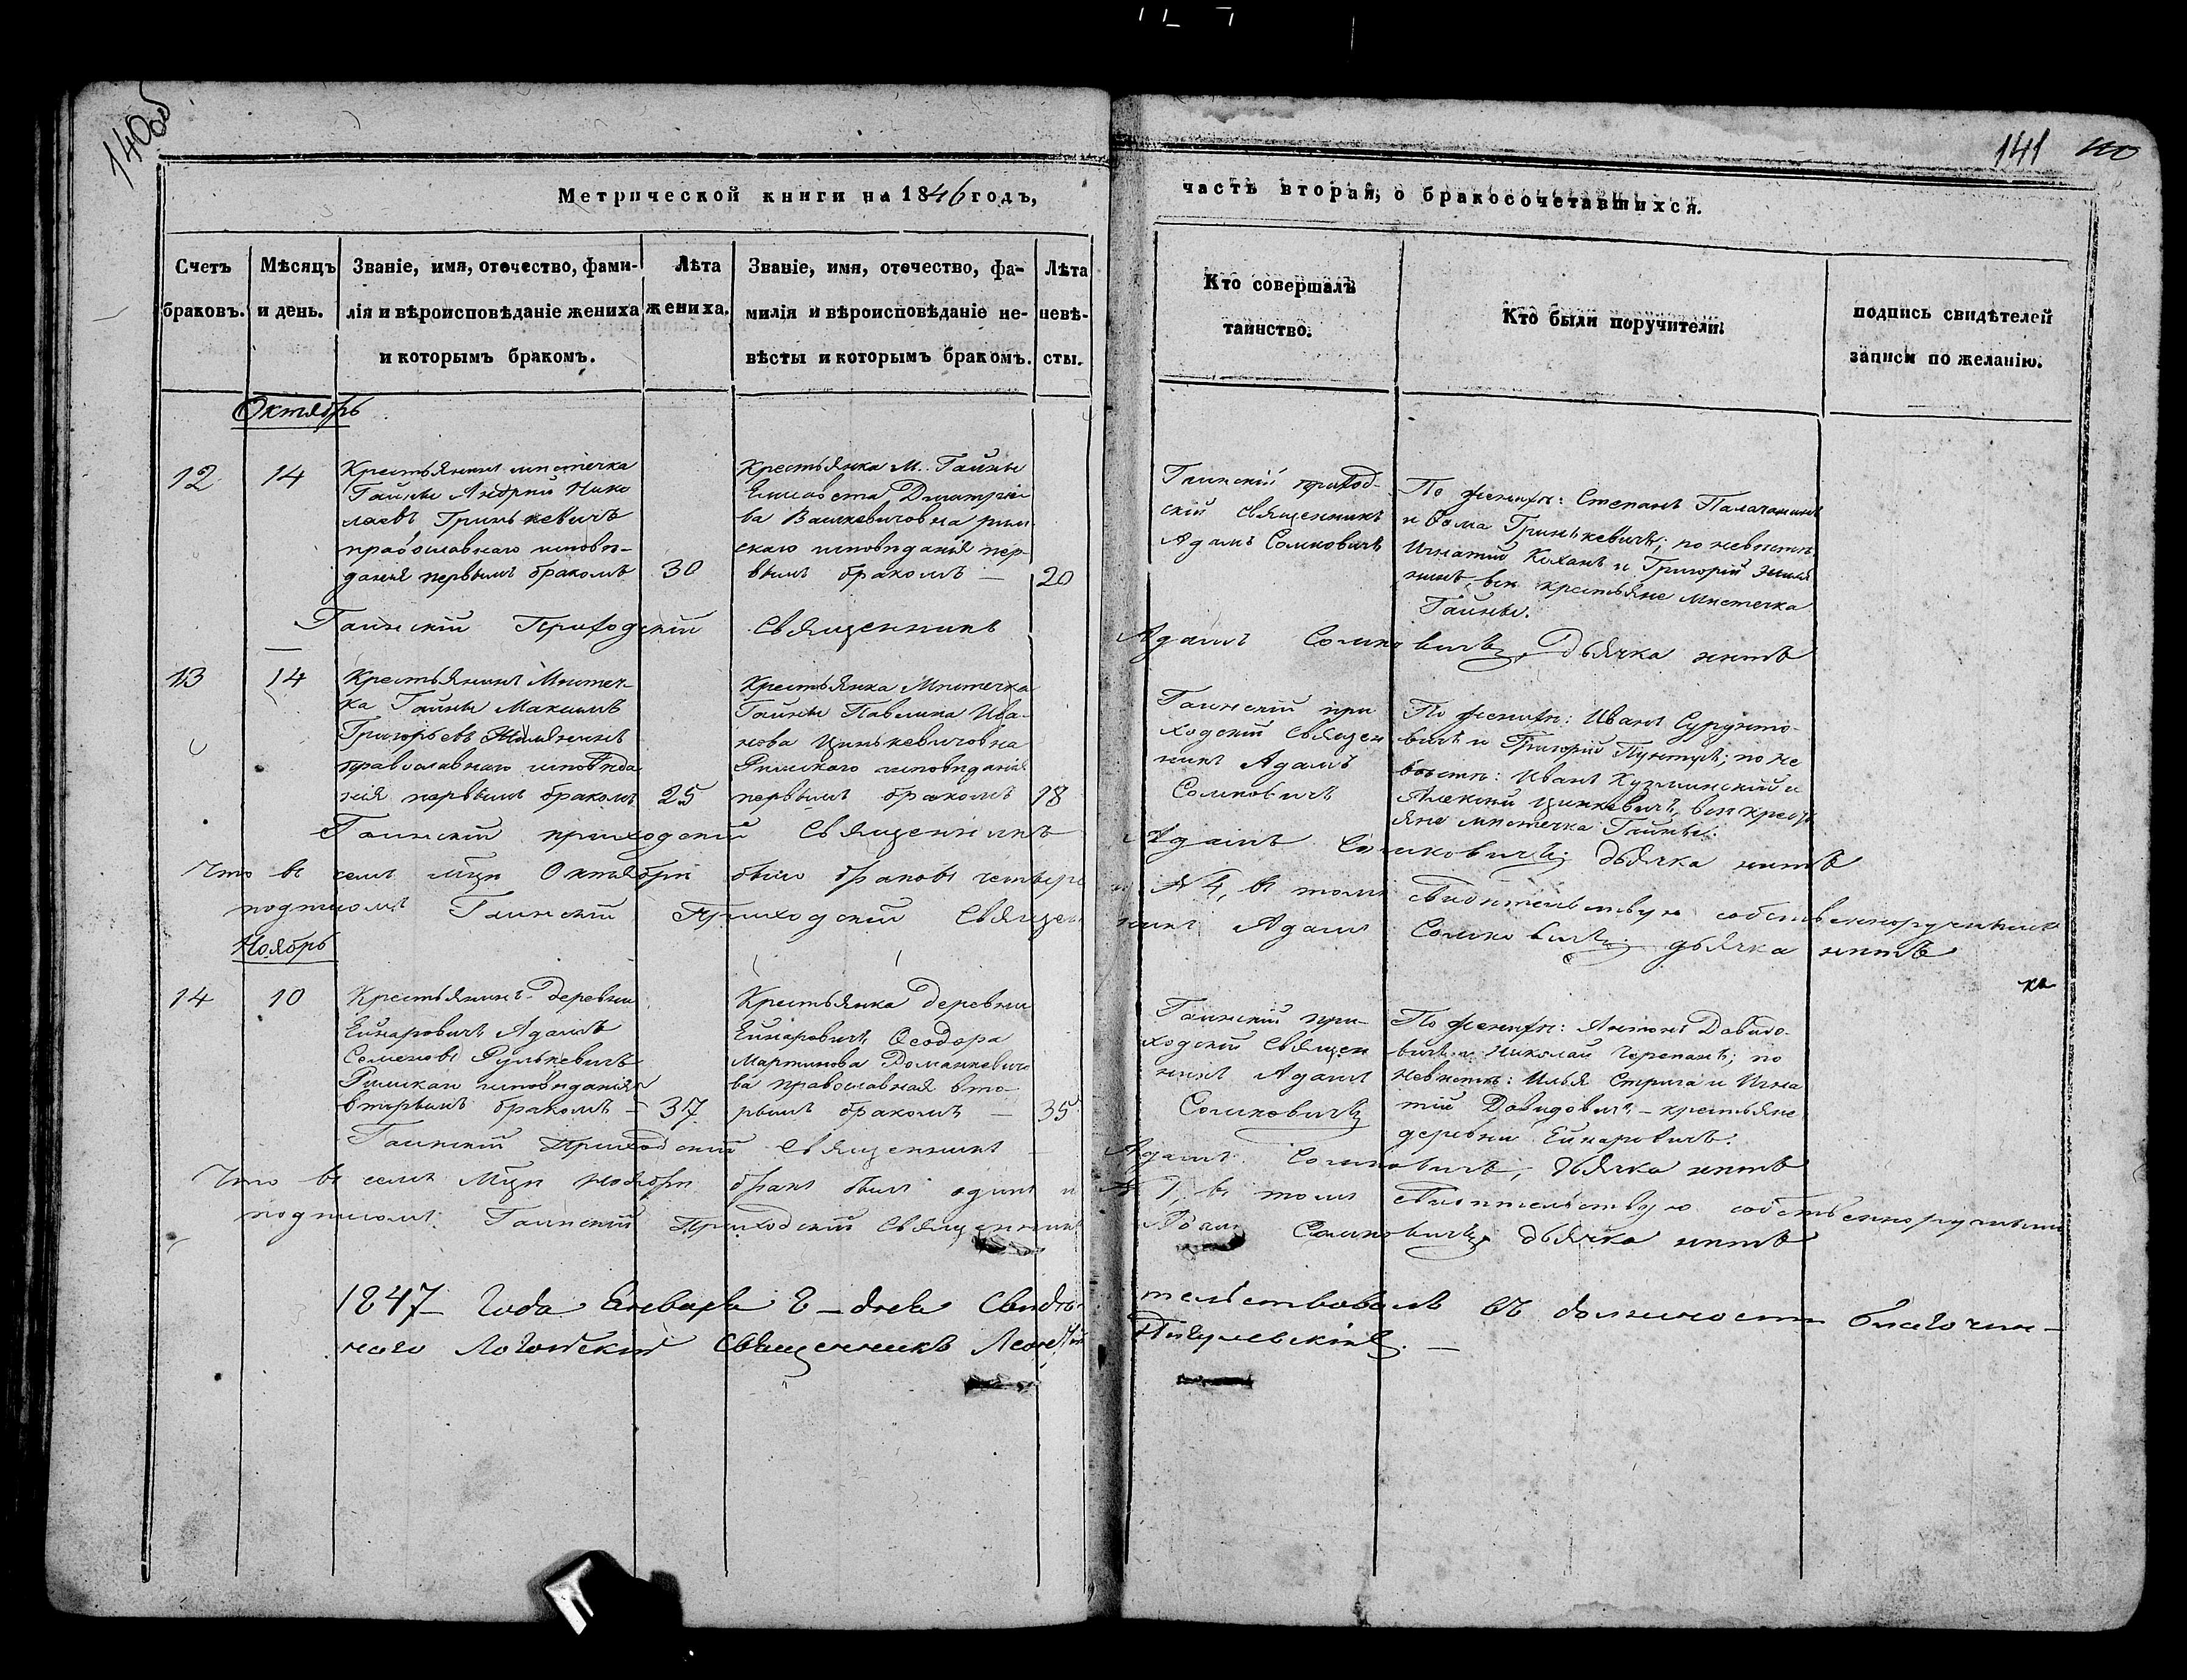 140об
141
Метрической книги на 1846 годъ,
часть вторая, о бракосочетавшихся.
Счетъ браковъ.
Мѣсяцъ и день.
Званіе, имя, отечество, фами-
лія и вѣроисповѣданіе жениха
и которымъ бракомъ.
Лѣта
жениха.
Званіе, имя, отечество, фа-
милія и вѣроисповѣданіе не-
вѣсты и которымъ бракомъ.
Лѣта
невѣ-
сты.
Кто совершалъ
таинство.
Кто были поручители.
подпись свидѣтелей
записи по желанію.
Октябрь
12
14
Крестьянинъ мѣстечка
Гайны Андрей Нико
лаевъ Гринькевичъ
православнаго исповѣ-
данія первымъ бракомъ
30
Крестьянка М. Гайны
Елисавета Дмитріе
ва Вашкевичовна рим
скаго исповѣданія пер-
вымъ бракомъ —
20
Гаинскій приход-
скій священникъ
Адамъ Сомковичъ
По женихѣ: Степанъ
и Ѳома Гринькевичъ; по невѣстѣ,
Игнатій Коханъ и Григорій
всѣ крестьяне мѣстечка
Гайны.
Гаинскій Приходскій Священникъ Адамъ Сомковичъ, дьячка нѣтъ
13
14
Крестьянинъ Мѣстеч-
ка Гайны Максимъ
Григорьевъ
православнаго исповѣда
нія первымъ бракомъ
25
Крестьянка Мѣстечка
Гайны Павлина Ива-
нова Цинькевичовна
Римскаго исповѣданія
первымъ бракомъ
18
Гаинскій при
ходскій Священ
никъ Адамъ
Сомковичъ
По женихѣ: Иванъ
и Григорій по не
вѣстѣ: Иванъ Кузминскій и
Алексій Цинкевичъ, всѣ кресть
яне мѣстечка Гайны.
Гаинскій приходскій Священникъ Адамъ Сомковичъ; дьячка нѣтъ
Что въ семъ мцѣ Октябрѣ было браковъ четыре и № 4, въ томъ свидѣтельствую собственноручнымъ
подписомъ Гаинскій Приходскій Священникъ Адамъ Сомковичъ, дьячка нѣтъ
Ноябрь
14
10
Крестьянинъ деревни
Ейнаровичъ Адамъ
Семеновъ Рулькевичъ
Римскаго исповѣданія
вторымъ бракомъ —
37
Крестьянка деревни
Ейнаровичъ Ѳеодора
Мартинова Романкевичо
ва православная вто-
рымъ бракомъ —
35
Гаинскій при-
ходскій Священ
никъ Адамъ
Сомковичъ
По женихѣ: Антонъ Давидо-
вичъ и Николай Черепанъ; по
невѣстѣ: Илья Стрига и Игна
тій Давидовичъ — крестьяне
деревни Ейнаровичъ.
Гаинскій Приходскій Священникъ Адамъ Сомковичъ, дьячка нѣтъ
Что въ семъ Мцѣ ноябрѣ бракъ былъ одинъ и № 1, въ томъ свидѣтельствую собственноручнымъ
подписомъ: Гаинскій Приходскій Священникъ Адамъ Сомковичъ, дьячка нѣтъ
1847 года Генваря 8 — дня Свидѣтельствовалъ въ должности благочин—
наго Логойскій Священникъ